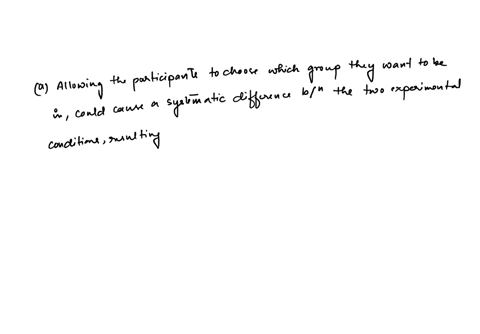 (a) Allowing the participants to choose which group they want to be
in, could cause a systematic difference b/n the two experimental
conditions, resulting